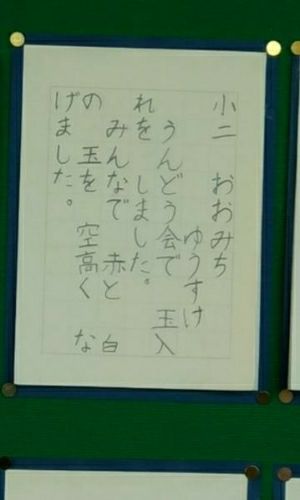 小二 おおみち
ゆうすけ
うんどう会で 玉入
れを しました。
みんなで 赤と 白
の 玉を 空高く な
げました。